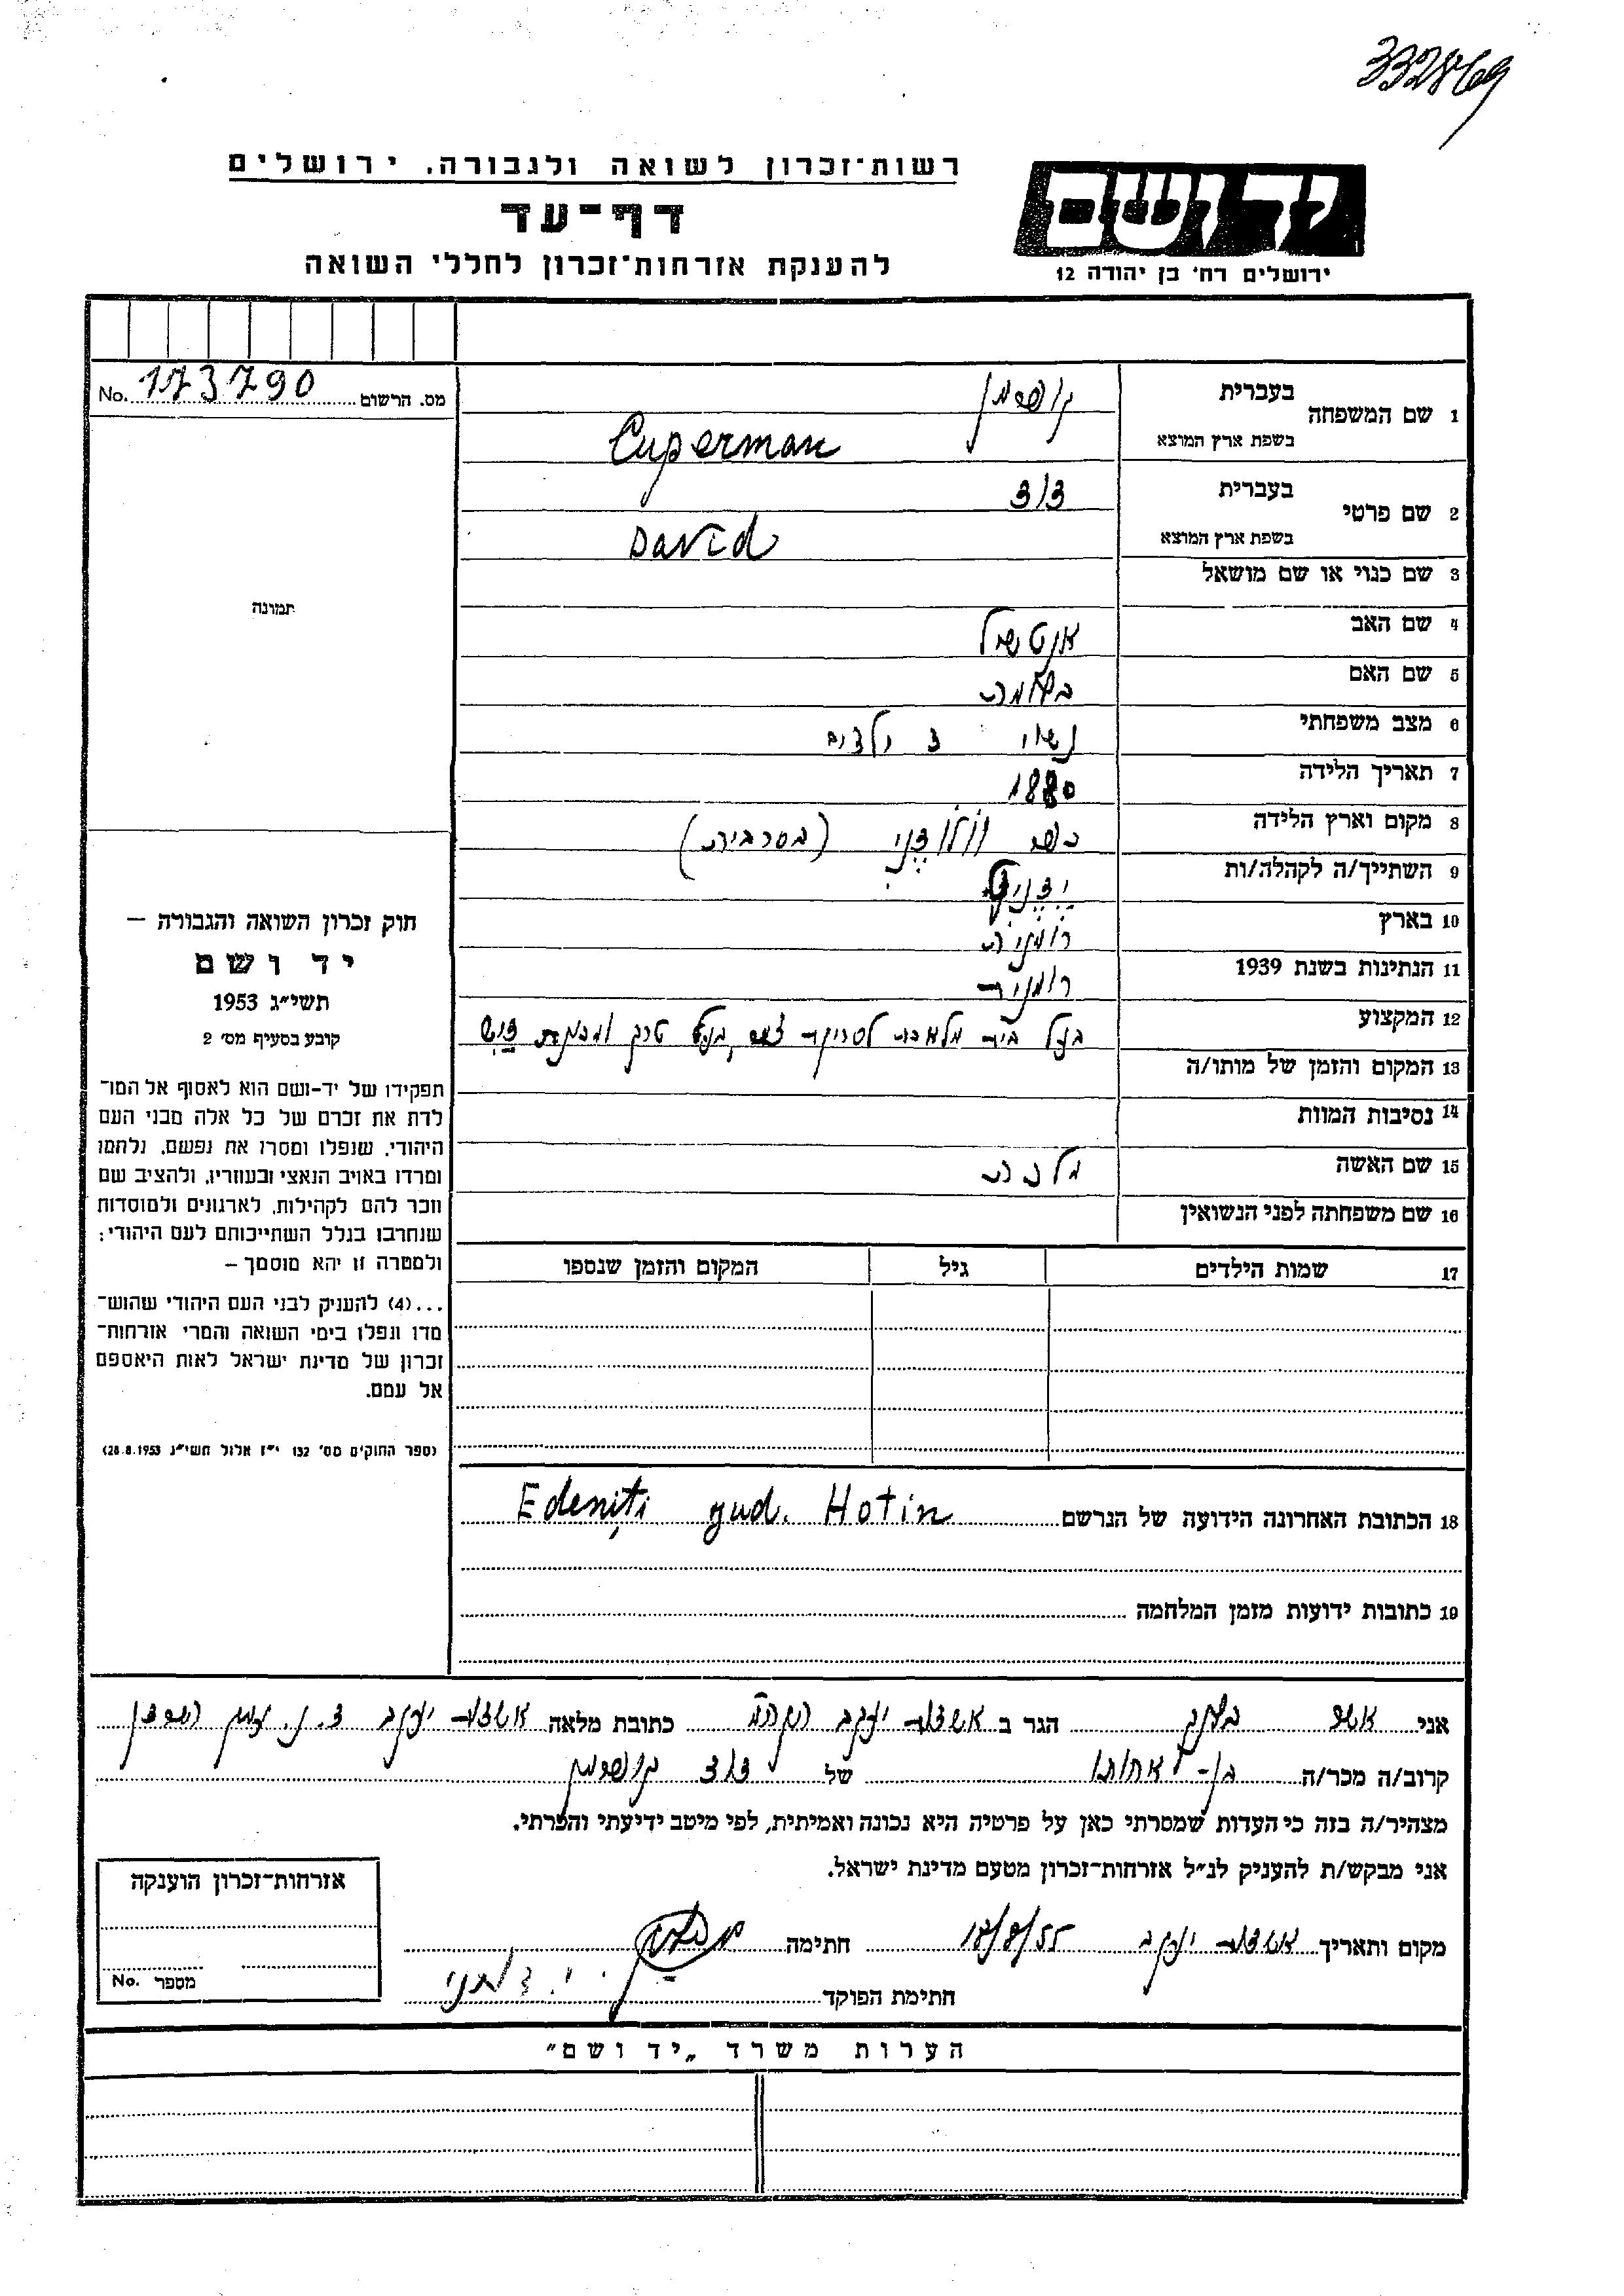 332869
רשות־זכרון לשואה ולגבורה, ירושלים
דף־עד
להענקת אזרחות־זכרון לחללי השואה
יד ושם
ירושלים רח' בן יהודה 12
מס. הרשום 173790 No.
1 שם המשפחה
בעברית קופרמן
בשפת ארץ המוצא Cuperman
2 שם פרטי
בעברית דוד
בשפת ארץ המוצא David
3 שם כנוי או שם מושאל
4 שם האב אנטשיל
5 שם האם
6 מצב משפחתי נשוי ילדים
7 תאריך הלידה 1880
8 מקום וארץ הלידה כפר (בסרביה)
9 השתייך/ה לקהלה/ות ידניץ
10 בארץ רומניה
11 הנתינות בשנת 1939 רומנית
12 המקצוע בעל בית מלאכה לסריקת צמר, בעל טרק
13 המקום והזמן של מותו/ה
14 נסיבות המוות
15 שם האשה מלכה
16 שם משפחתה לפני הנשואין
17 שמות הילדים גיל המקום והזמן שנספו
תמונה
חוק זכרון השואה והגבורה —
יד ושם
תשי״ג 1953
קובע בסעיף מס׳ 2
תפקידו של יד-ושם הוא לאסוף אל המו־
לדת את זכרם של כל אלה מבני העם
היהודי, שנפלו ומסרו את נפשם, נלחמו
ומרדו באויב הנאצי ובעוזריו, ולהציב שם
וזכר להם לקהילות, לארגונים ולמוסדות
שנחרבו בגלל השתייכותם לעם היהודי:
ולמטרה זו יהא מוסמך —
...(4) להעניק לבני העם היהודי שהוש־
מדו ונפלו בימי השואה והמרי אזרחות־
זכרון של מדינת ישראל לאות היאספם
אל עמם.
(ספר החוקים מס׳ 132 י״ז אלול תשי״ג 28.8.1953)
18 הכתובת האחרונה הידועה של הנרשם Edeniți jud. Hotin
19 כתובות ידועות מזמן המלחמה
אני אשר הגר ב אשדות יעקב כתובת מלאה אשדות יעקב ד.נ. עמק הירדן
קרוב/ה מכר/ה בן-אחותו של דוד קופרמן
מצהיר/ה בזה כי העדות שמסרתי כאן על פרטיה היא נכונה ואמיתית, לפי מיטב ידיעתי והכרתי.
אני מבקש/ת להעניק לנ״ל אזרחות־זכרון מטעם מדינת ישראל.
מקום ותאריך אשדות יעקב 18/8/55 חתימה
חתימת הפוקד
אזרחות־זכרון הוענקה
מספר No.
הערות משרד „יד ושם״